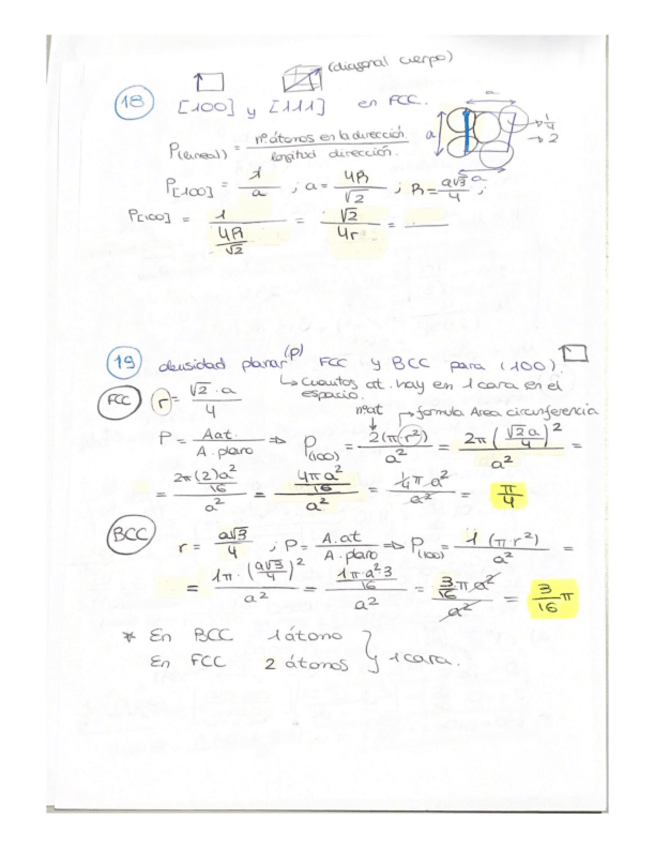 (diagonal cuerpo)
18 [100] y [111] en FCC.
a
a
1/4
→ 2
a
P(lineal) = nº átomos en la dirección / longitud dirección.
P[100] = 1/a ; a = 4R/√2 ; R = a√3/4 ;
P[100] = 1/(4R/√2) = √2/4r = 
19 densidad planar (P) FCC y BCC para (100).
↳ Cuantos at. hay en 1 cara en el espacio.
FCC r = √2·a/4
nºat → formula Area circunferencia
P = Aat./A.plano ⇒ P(100) = 2(π·r²)/a² = 2π(√2a/4)²/a² =
= (2π(2)a²/16)/a² = (4πa²/16)/a² = 1/4 π a²/a² = π/4
BCC r = a√3/4 ; P = A.at/A.plano ⇒ P(100) = 1(π·r²)/a² =
= 1π·(a√3/4)²/a² = (1π·a²·3/16)/a² = 3/16 π a²/a² = 3/16 π
* En BCC 1 átomo
En FCC 2 átomos } y 1 cara.